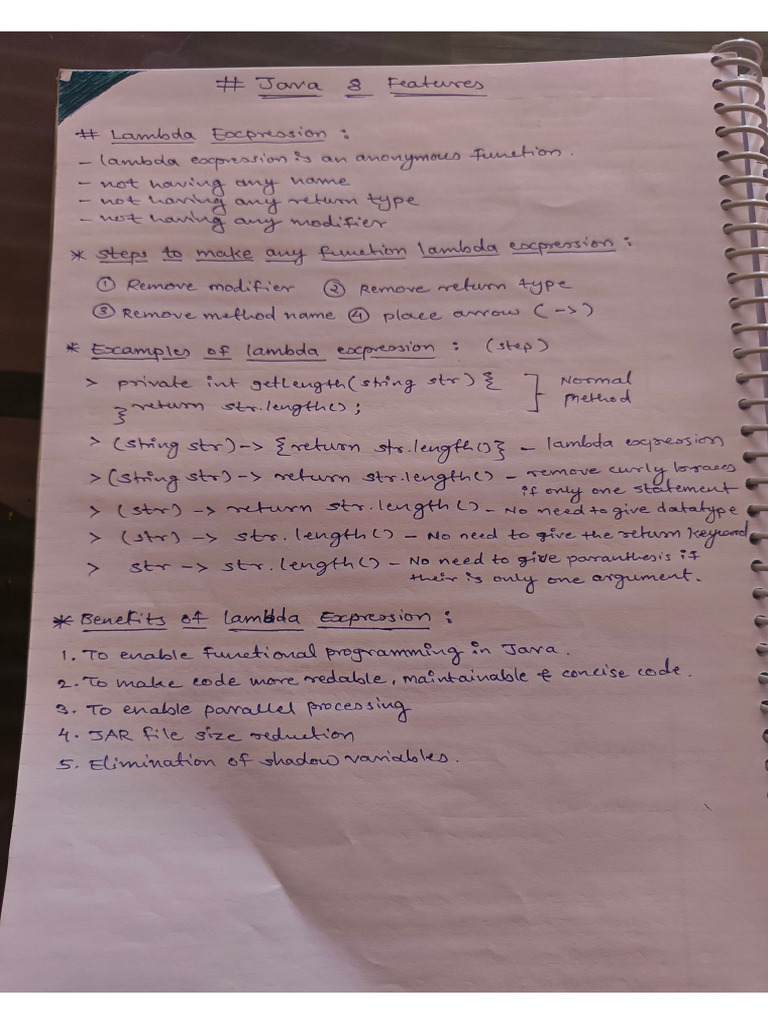 # Java 8 Features
# Lambda Expression :
- lambda expression is an anonymous function.
- not having any name
- not having any return type
- not having any modifier
* steps to make any function lambda expression :
① Remove modifier ② Remove return type
③ Remove method name ④ place arrow (->)
* Examples of lambda expression : (step)
> private int getLength(string str) { ] Normal
} return str.length(); method
> (string str) -> {return str.length()} - lambda expression
> (string str) -> return str.length() - remove curly braces
if only one statement
> (str) -> return str.length() - No need to give datatype
> (str) -> str.length() - No need to give the return keyword
> str -> str.length() - No need to give paranthesis if
their is only one argument.
* Benefits of lambda Expression :
1. To enable functional programming in Java.
2. To make code more redable, maintainable & concise code.
3. To enable parallel processing
4. JAR file size reduction
5. Elimination of shadow variables.